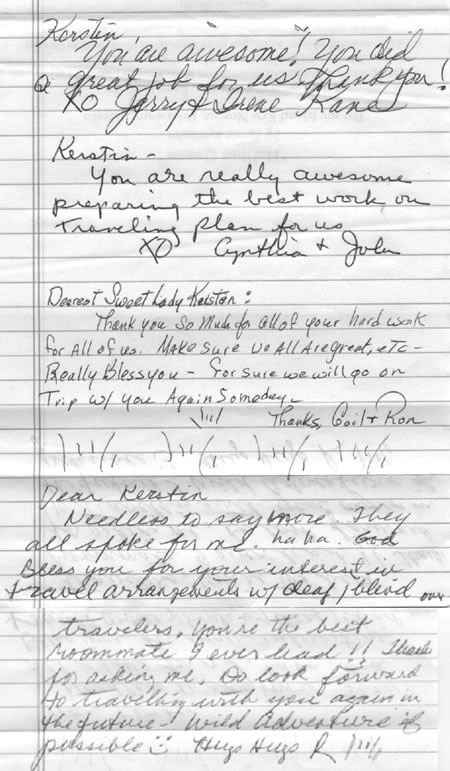 Kerstin
You are awesome! You did
a great job for us. Thank you!
XO Jerry & Irene Kana
Kerstin -
You are really awesome
preparing the best work on
traveling plan for us
XO Cynthia + John
Dearest Sweet Lady Kersten:
Thank you so much for all of your hard work
for All of us. Make sure we All Are great, etc -
Really Bless you - For sure we will go on
Trip w/ you Again Someday -
Thanks, Gail + Ron
Dear Kerstin
Needless to say more. They
all spoke for me. ha ha. God
Bless you for your interest in
travel arrangements w/ deaf/blind over
travelers, you're the best
roommate I ever had!! Thanks
for asking me. Do look forward
to travelling with you again in
the future - Wild Adventure if
possible Hugs Hugs R